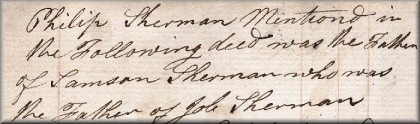 Philip Sherman Mentiond in
the Following deed was the Father
of Samson Sherman who was
the Father of Job Sherman